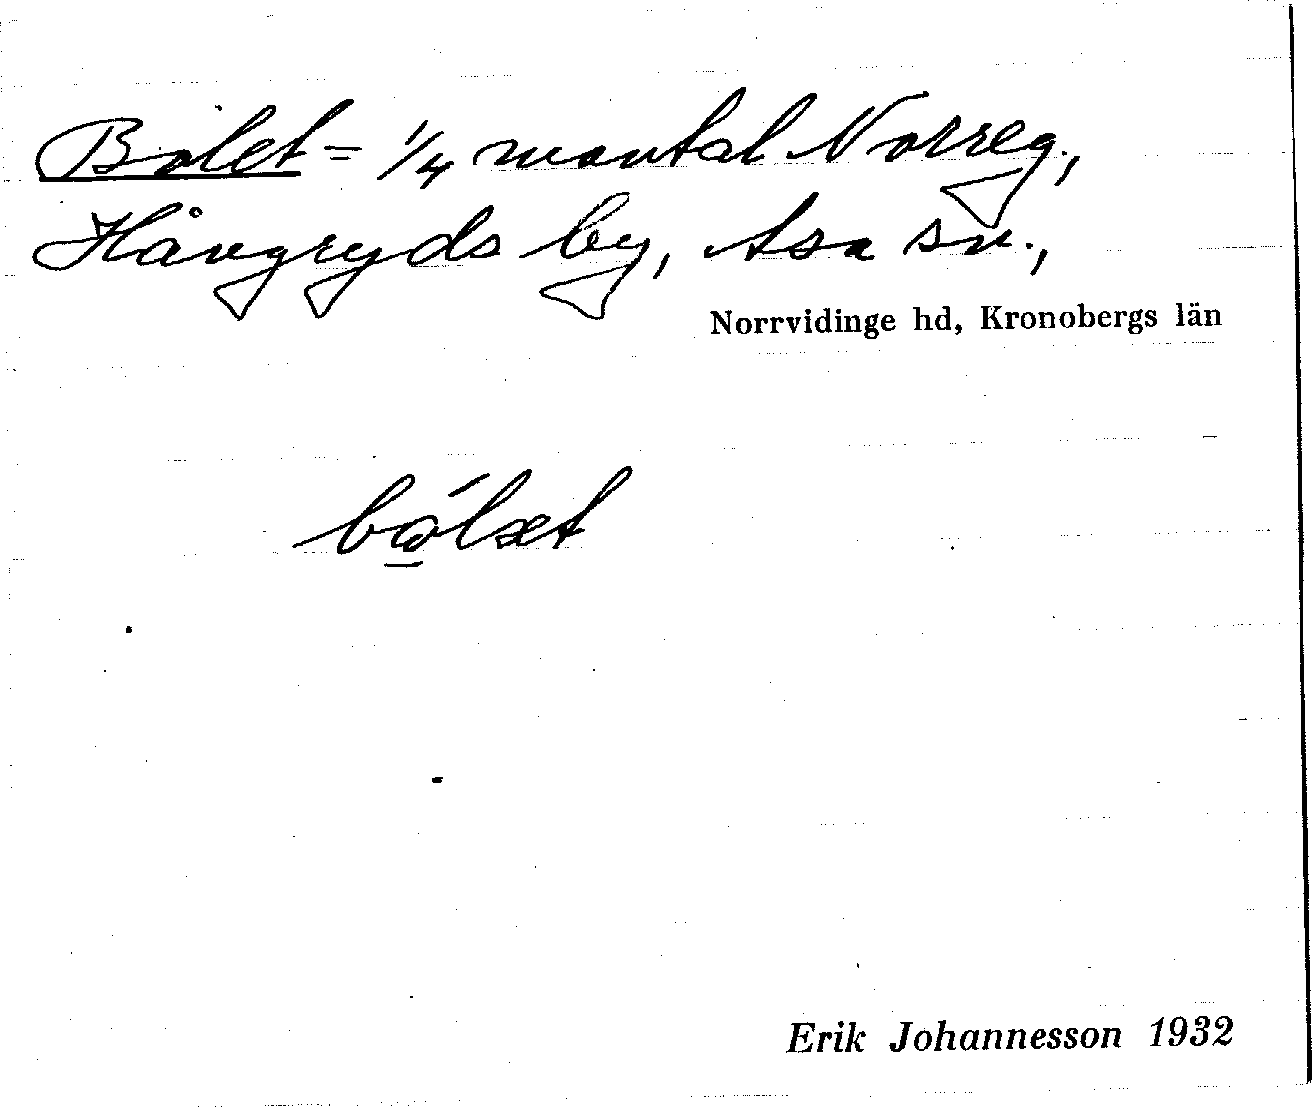 Bolet = 1/4 mantal Norreg.,
Hångryds by, Asa sn.,
Norrvidinge hd, Kronobergs län
Erik Johannesson 1932